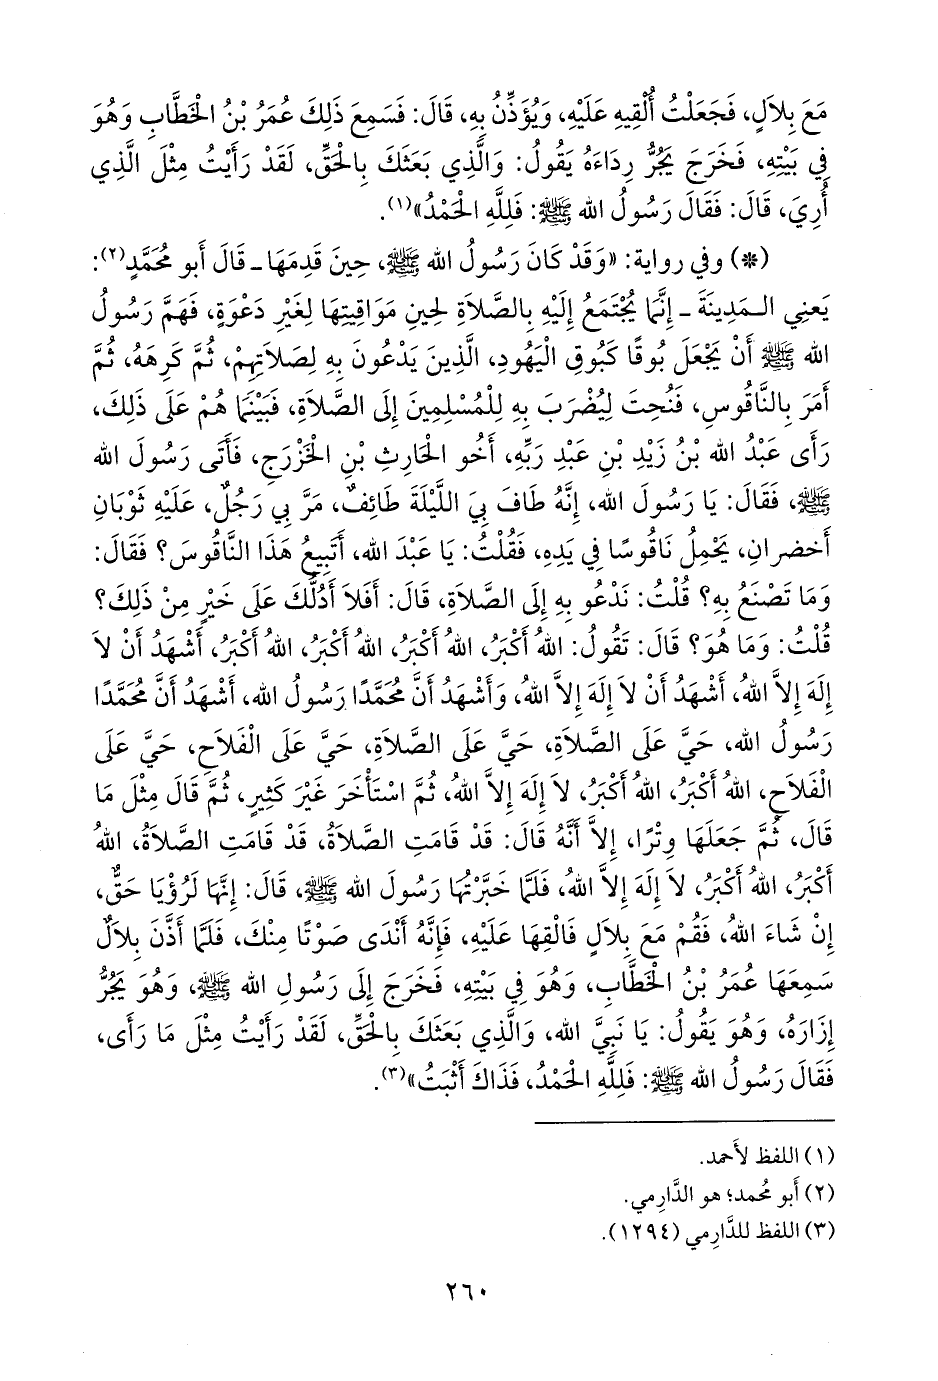 مَعَ بِلاَلٍ، فَجَعَلْتُ أُلْقِيهِ عَلَيْهِ، وَيُؤَذِّنُ بِهِ، قَالَ: فَسَمِعَ ذَلِكَ عُمَرُ بْنُ الْخَطَّابِ وَهُوَ
فِي بَيْتِهِ، فَخَرَجَ يَجُرُّ رِدَاءَهُ يَقُولُ: وَالَّذِي بَعَثَكَ بِالْحَقِّ، لَقَدْ رَأَيْتُ مِثْلَ الَّذِي
أُرِيَ، قَالَ: فَقَالَ رَسُولُ الله ﷺ: فَلِلَّهِ الْحَمْدُ»(١).
(*) وفي رواية: «وَقَدْ كَانَ رَسُولُ الله ﷺ، حِينَ قَدِمَهَا ـ قَالَ أَبو مُحَمَّدٍ(٢):
يَعنِي الـمَدِينَةَ ـ إِنَّمَا يُجْتَمَعُ إِلَيْهِ بِالصَّلاَةِ لِحِينِ مَوَاقِيتِهَا لِغَيْرِ دَعْوَةٍ، فَهَمَّ رَسُولُ
الله ﷺ أَنْ يَجْعَلَ بُوقًا كَبُوقِ الْيَهُودِ، الَّذِينَ يَدْعُونَ بِهِ لِصَلاَتِهِمْ، ثُمَّ كَرِهَهُ، ثُمَّ
أَمَرَ بِالنَّاقُوسِ، فَنُحِتَ لِيُضْرَبَ بِهِ لِلْمُسْلِمِينَ إِلَى الصَّلاَةِ، فَبَيْنَمَا هُمْ عَلَى ذَلِكَ،
رَأَى عَبْدُ الله بْنُ زَيْدِ بْنِ عَبْدِ رَبِّهِ، أَخُو الْحَارِثِ بْنِ الْخَزْرَجِ، فَأَتَى رَسُولَ الله
ﷺ، فَقَالَ: يَا رَسُولَ الله، إِنَّهُ طَافَ بِيَ اللَّيْلَةَ طَائِفٌ، مَرَّ بِي رَجُلٌ، عَلَيْهِ ثَوْبَانِ
أَخضرانِ، يَحْمِلُ نَاقُوسًا فِي يَدِهِ، فَقُلْتُ: يَا عَبْدَ الله، أَتَبِيعُ هَذَا النَّاقُوسَ؟ فَقَالَ:
وَمَا تَصْنَعُ بِهِ؟ قُلْتُ: نَدْعُو بِهِ إِلَى الصَّلاَةِ، قَالَ: أَفَلاَ أَدُلُّكَ عَلَى خَيْرٍ مِنْ ذَلِكَ؟
قُلْتُ: وَمَا هُوَ؟ قَالَ: تَقُولُ: اللهُ أَكْبَرُ، اللهُ أَكْبَرُ، اللهُ أَكْبَرُ، اللهُ أَكْبَرُ، أَشْهَدُ أَنْ لاَ
إِلَهَ إِلاَّ اللهُ، أَشْهَدُ أَنْ لاَ إِلَهَ إِلاَّ اللهُ، وَأَشْهَدُ أَنَّ مُحَمَّدًا رَسُولُ الله، أَشْهَدُ أَنَّ مُحَمَّدًا
رَسُولُ الله، حَيَّ عَلَى الصَّلاَةِ، حَيَّ عَلَى الصَّلاَةِ، حَيَّ عَلَى الْفَلاَحِ، حَيَّ عَلَى
الْفَلاَحِ، اللهُ أَكْبَرُ، اللهُ أَكْبَرُ، لاَ إِلَهَ إِلاَّ اللهُ، ثُمَّ اسْتَأْخَرَ غَيْرَ كَثِيرٍ، ثُمَّ قَالَ مِثْلَ مَا
قَالَ، ثُمَّ جَعَلَهَا وِتْرًا، إِلاَّ أَنَّهُ قَالَ: قَدْ قَامَتِ الصَّلاَةُ، قَدْ قَامَتِ الصَّلاَةُ، اللهُ
أَكْبَرُ، اللهُ أَكْبَرُ، لاَ إِلَهَ إِلاَّ اللهُ، فَلَمَّا خَبَّرْتُهَا رَسُولَ الله ﷺ، قَالَ: إِنَّهَا لَرُؤْيَا حَقٌّ،
إِنْ شَاءَ اللهُ، فَقُمْ مَعَ بِلاَلٍ فَالْقِهَا عَلَيْهِ، فَإِنَّهُ أَنْدَى صَوْتًا مِنْكَ، فَلَمَّا أَذَّنَ بِلاَلٌ
سَمِعَهَا عُمَرُ بْنُ الْخَطَّابِ، وَهُوَ فِي بَيْتِهِ، فَخَرَجَ إِلَى رَسُولِ الله ﷺ، وَهُوَ يَجُرُّ
إِزَارَهُ، وَهُوَ يَقُولُ: يَا نَبِيَّ الله، وَالَّذِي بَعَثَكَ بِالْحَقِّ، لَقَدْ رَأَيْتُ مِثْلَ مَا رَأَى،
فَقَالَ رَسُولُ الله ﷺ: فَلِلَّهِ الْحَمْدُ، فَذَاكَ أَثْبَتُ»(٣).
(١) اللفظ لأَحمد.
(٢) أَبو مُحمد؛ هو الدَّارِمي.
(٣) اللفظ للدَّارِمي (١٢٩٤).
٢٦٠